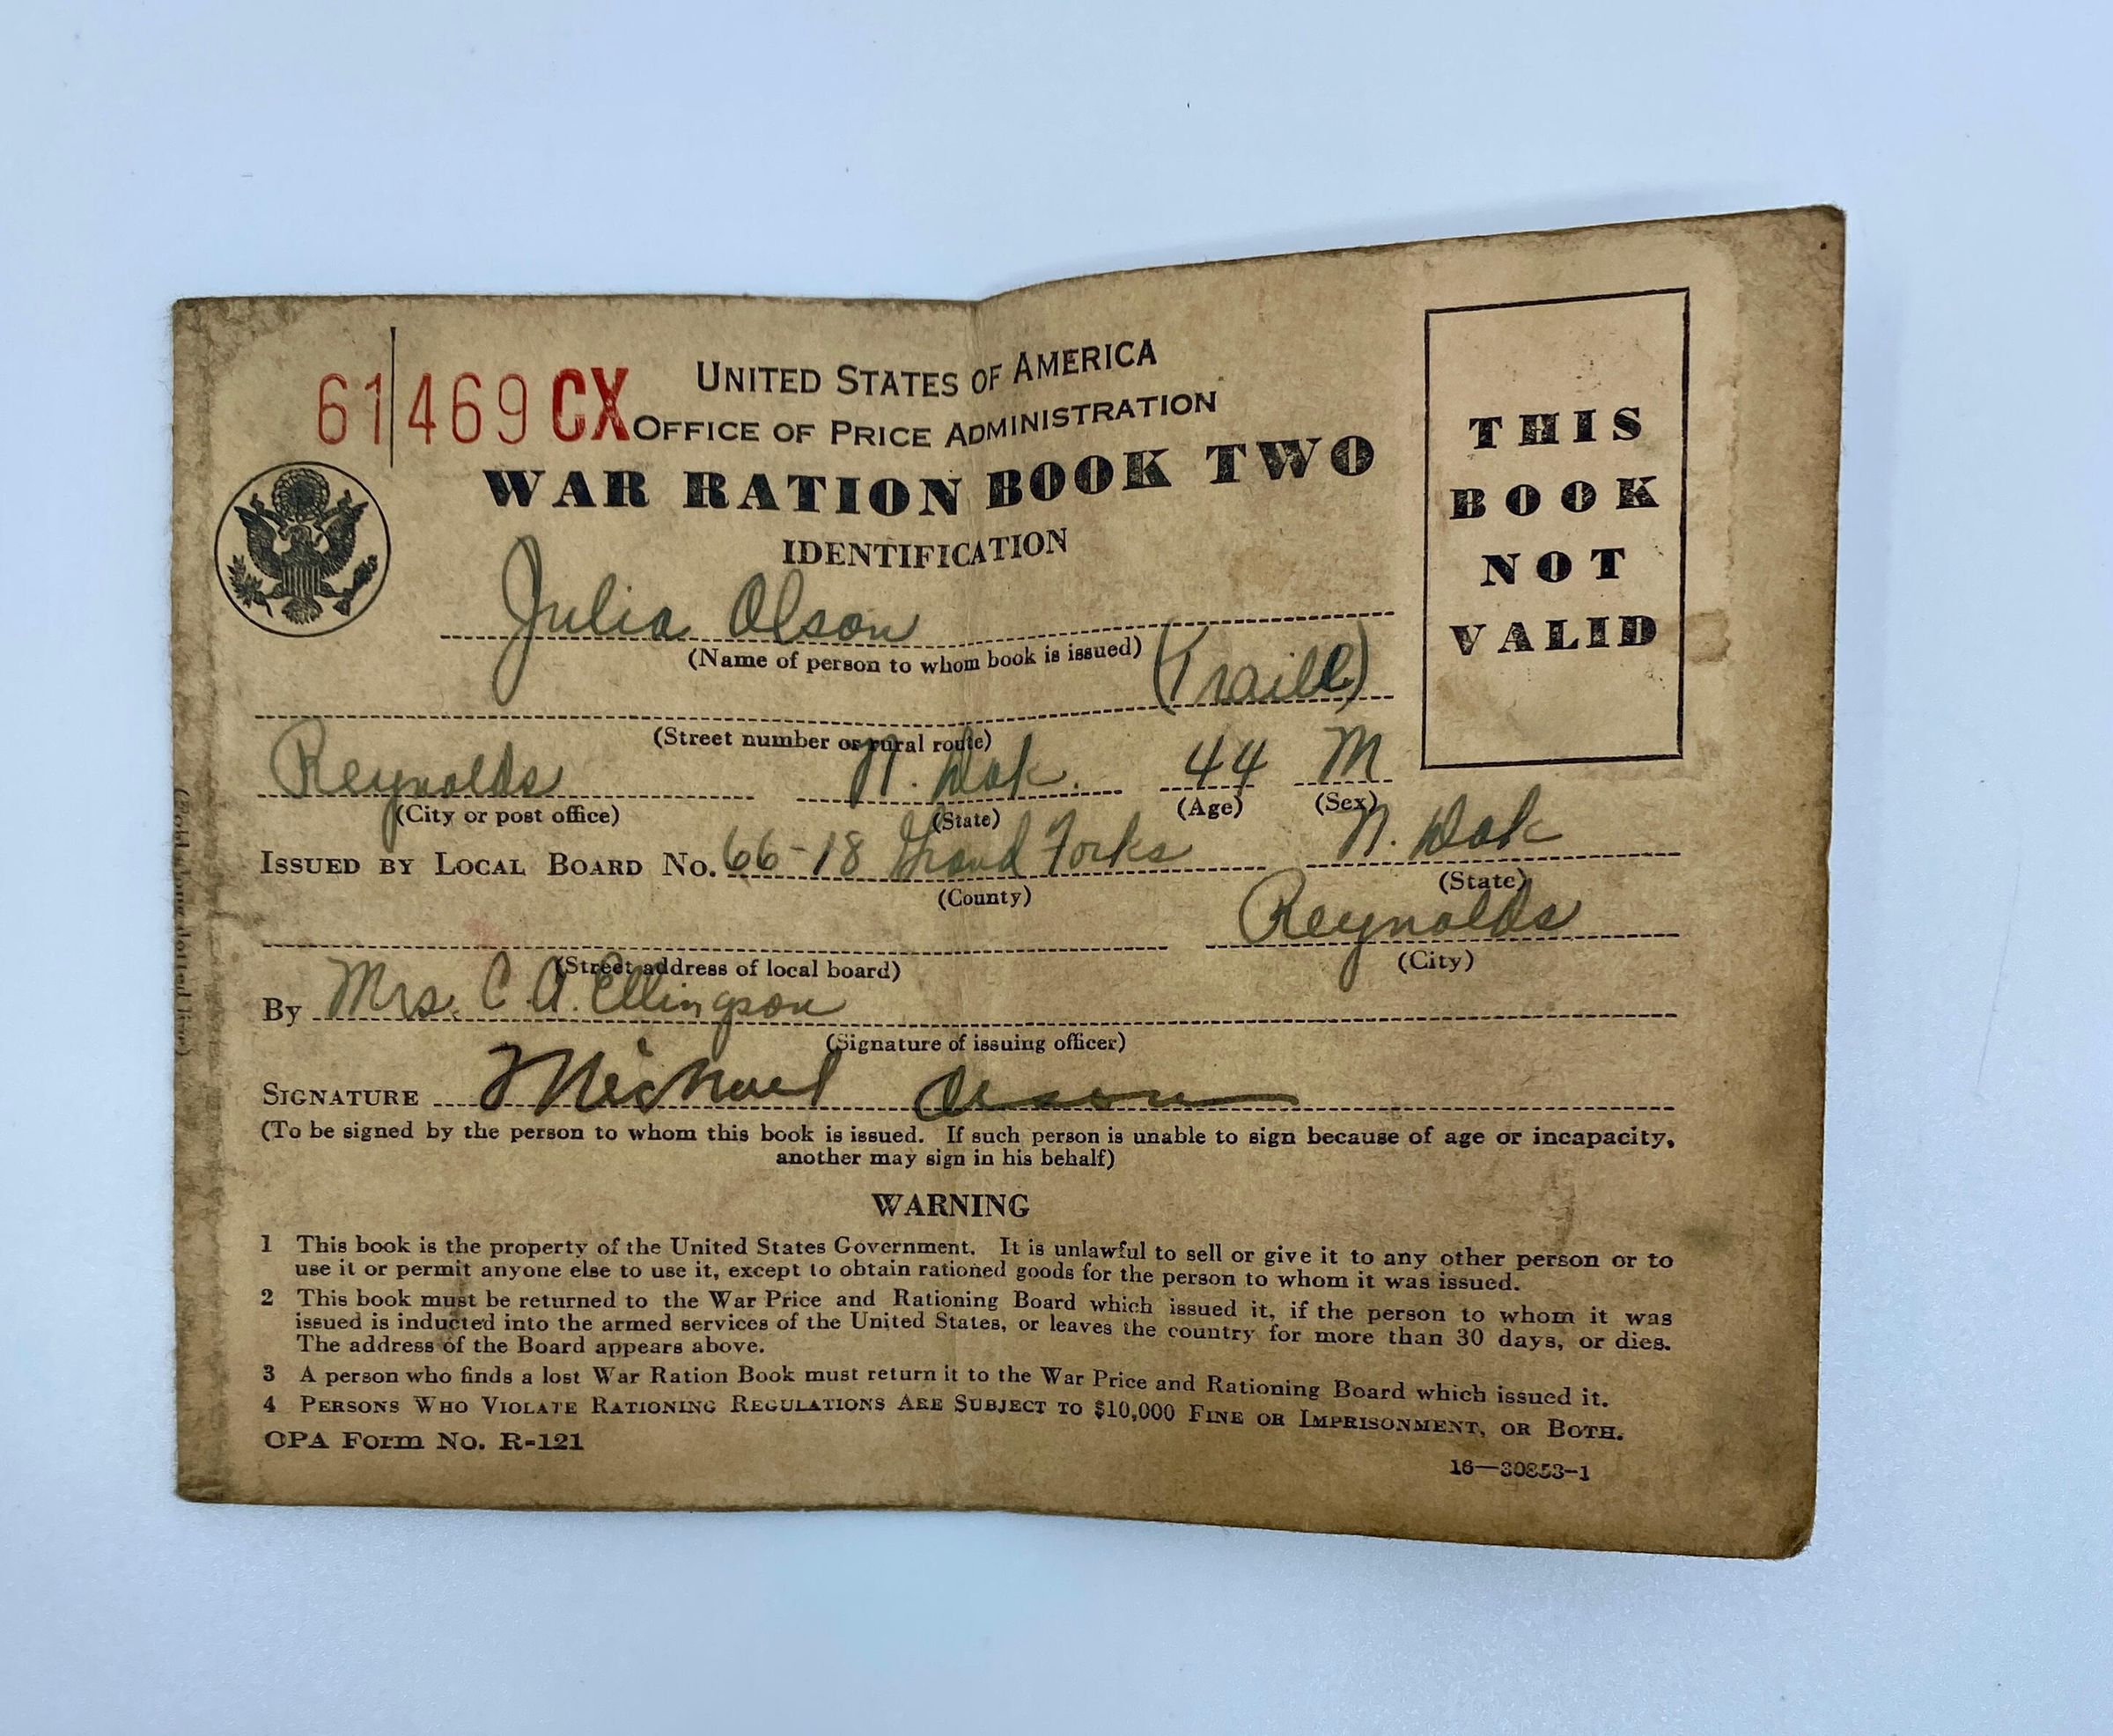 61469 CX
UNITED STATES OF AMERICA
OFFICE OF PRICE ADMINISTRATION
WAR RATION BOOK TWO
IDENTIFICATION
THIS
BOOK
NOT
VALID
Julia Olson
(Name of person to whom book is issued)
(Traill)
(Street number or rural route)
Reynolds N. Dak. 44 M
(City or post office) (State) (Age) (Sex)
ISSUED BY LOCAL BOARD NO. 66-18 Grand Forks N. Dak
(County) (State)
Reynolds
(Street address of local board) (City)
By Mrs. C. A. Ellingson
(Signature of issuing officer)
SIGNATURE Michael Olson
(To be signed by the person to whom this book is issued. If such person is unable to sign because of age or incapacity,
another may sign in his behalf)
WARNING
1 This book is the property of the United States Government. It is unlawful to sell or give it to any other person or to
use it or permit anyone else to use it, except to obtain rationed goods for the person to whom it was issued.
2 This book must be returned to the War Price and Rationing Board which issued it, if the person to whom it was
issued is inducted into the armed services of the United States, or leaves the country for more than 30 days, or dies.
The address of the Board appears above.
3 A person who finds a lost War Ration Book must return it to the War Price and Rationing Board which issued it.
4 PERSONS WHO VIOLATE RATIONING REGULATIONS ARE SUBJECT TO $10,000 FINE OR IMPRISONMENT, OR BOTH.
OPA Form No. R-121
16—30853-1